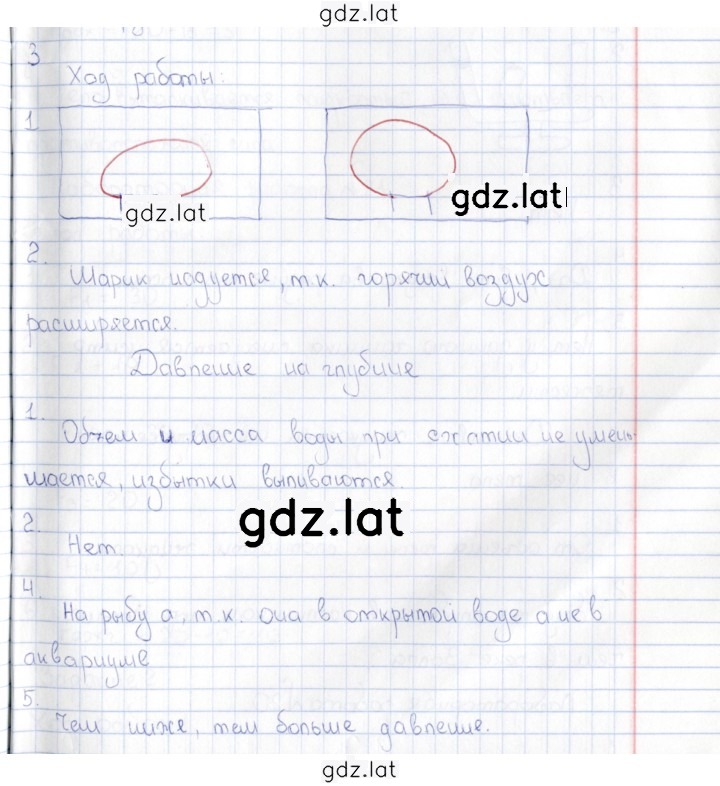 gdz.lat
gdz.lat
3
Ход работы:
1
gdz.lat
gdz.lat
2.
Шарик надуется, т.к. горячий воздух
расширяется.
Давление на глубине
1.
Объем и масса воды при сжатии не умень
шается, избытки выливаются.
gdz.lat
2.
Нет.
4.
На рыбу а, т.к. она в открытой воде а не в
аквариуме
5.
Чем ниже, тем больше давление.
gdz.lat